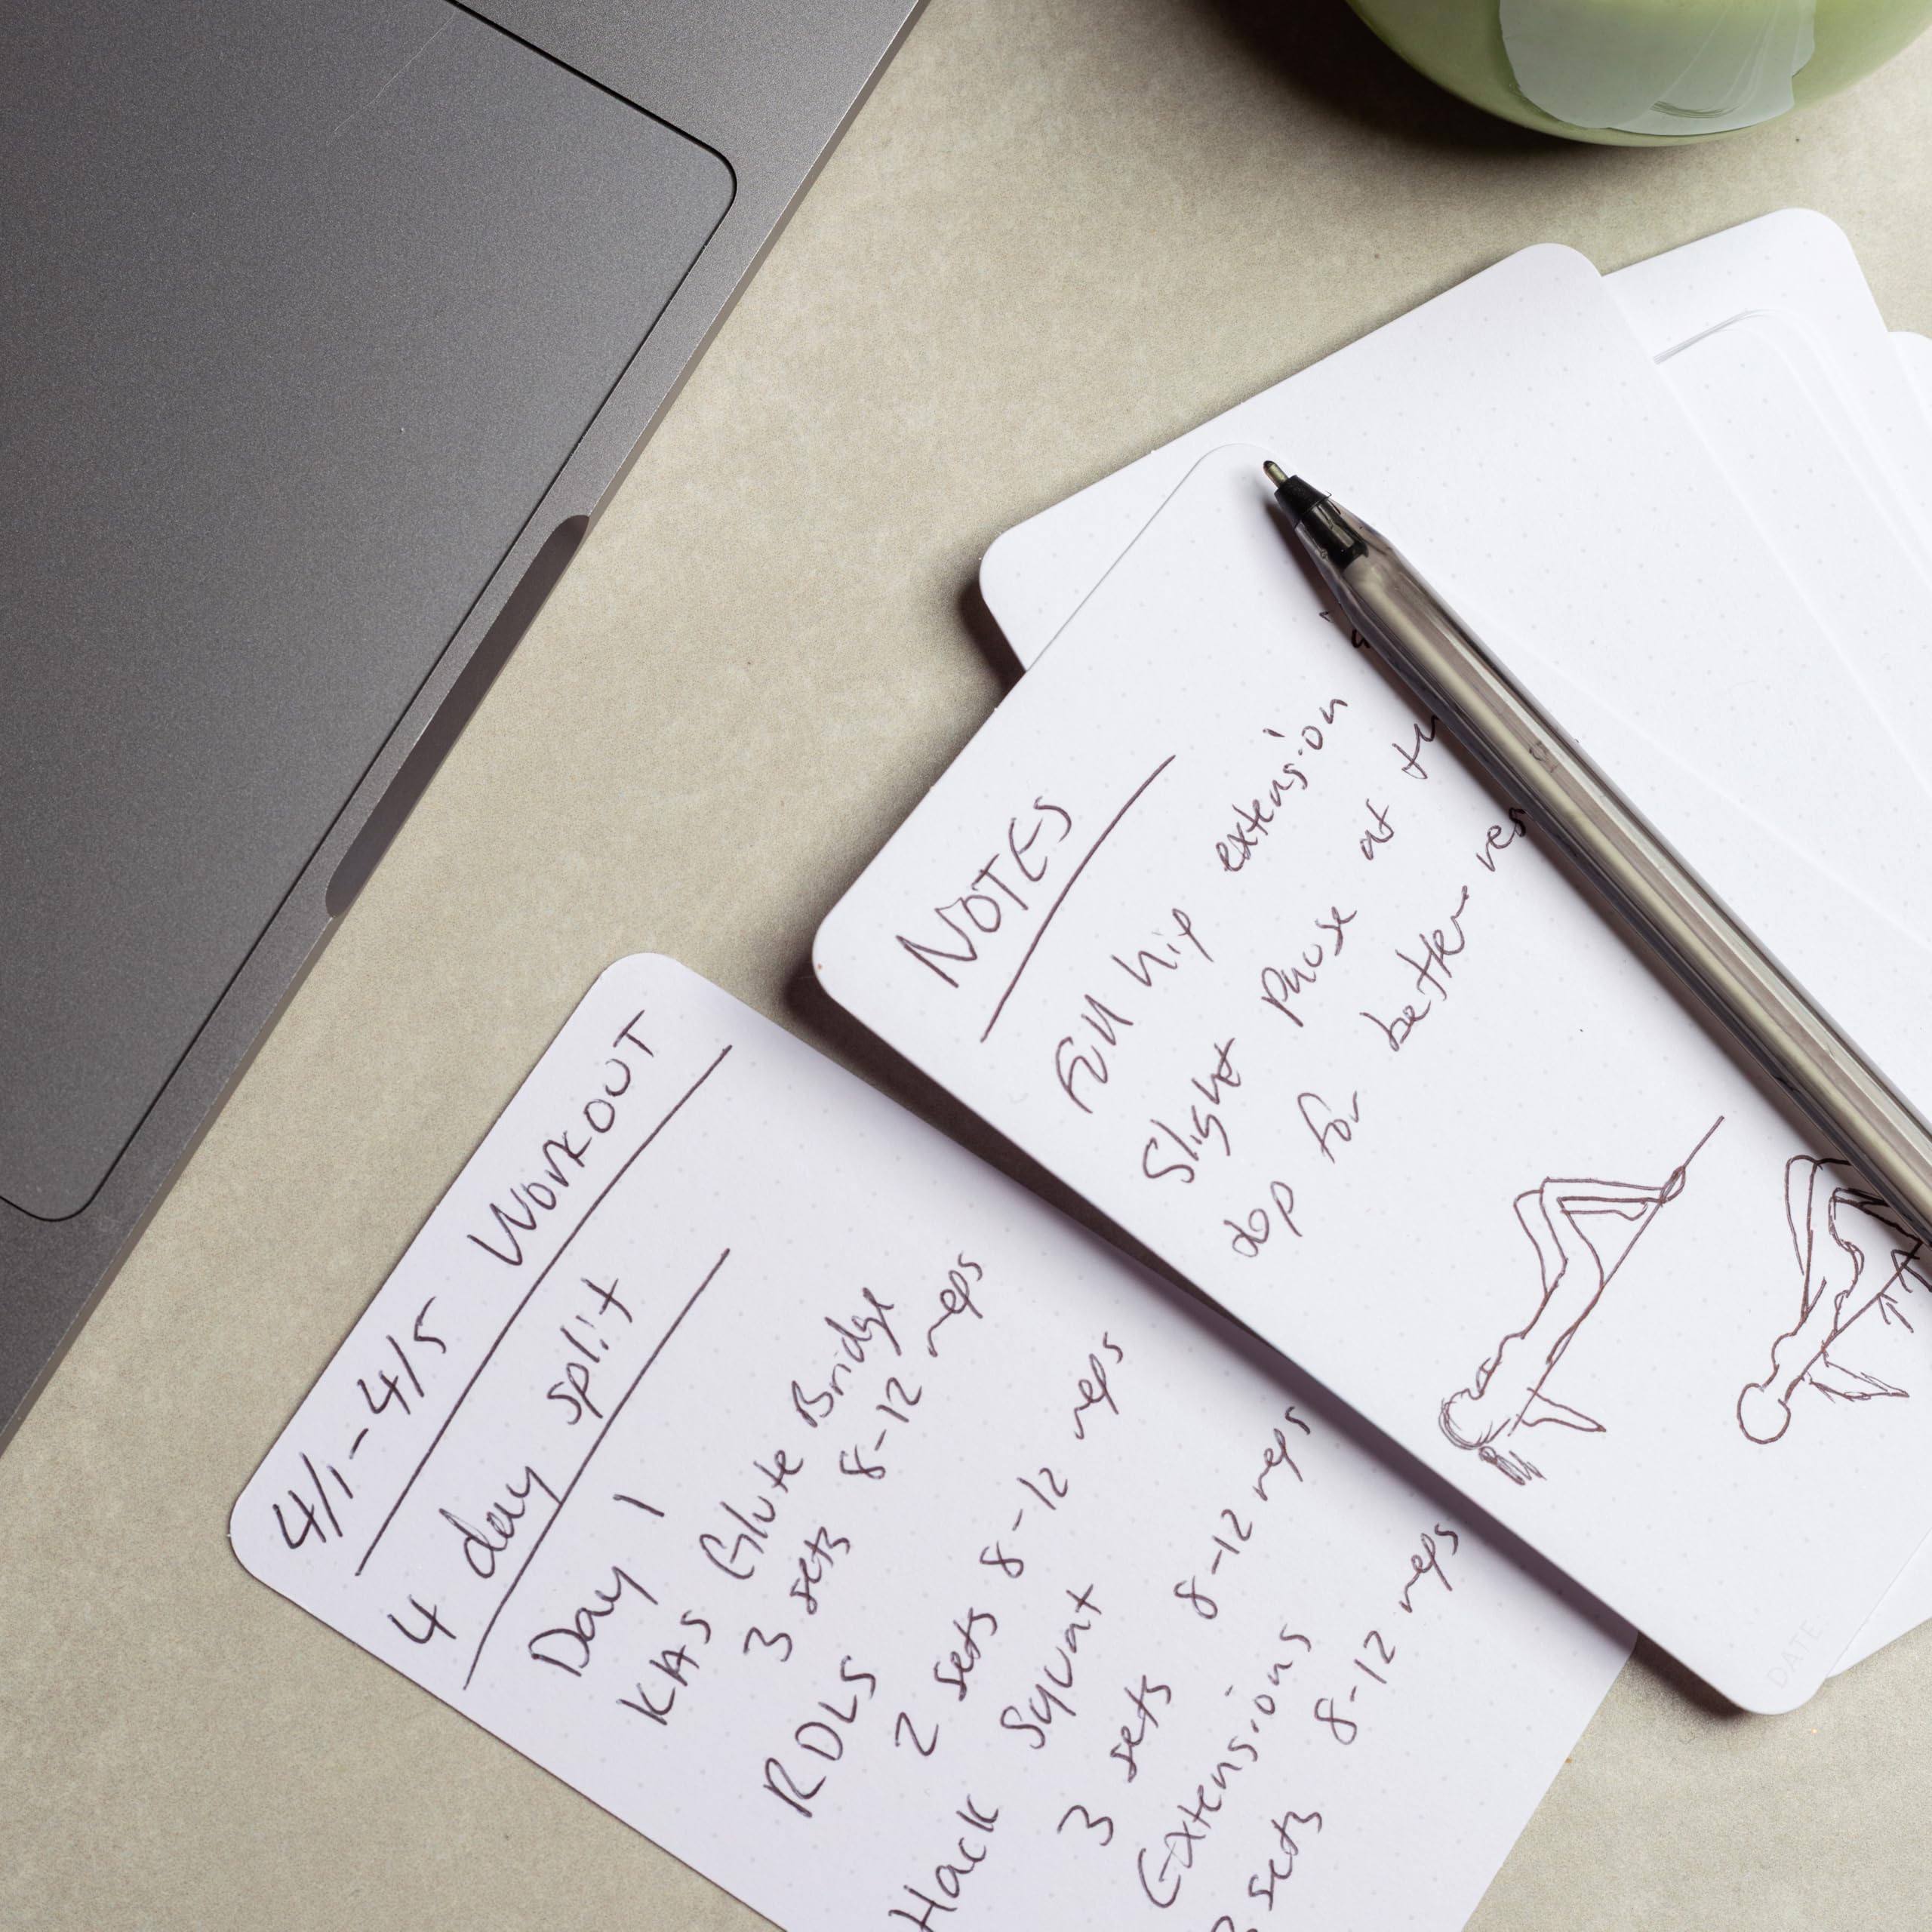 4/1-4/5 Workout
4 day split
Day 1
KAS Glute Bridge
3 sets 8-12 reps
RDLS
2 sets 8-12 reps
Hack Squat
3 sets 8-12 reps
Extensions
sets 8-12 reps
NOTES
Full hip extension
Slight pause at
top for better
DATE